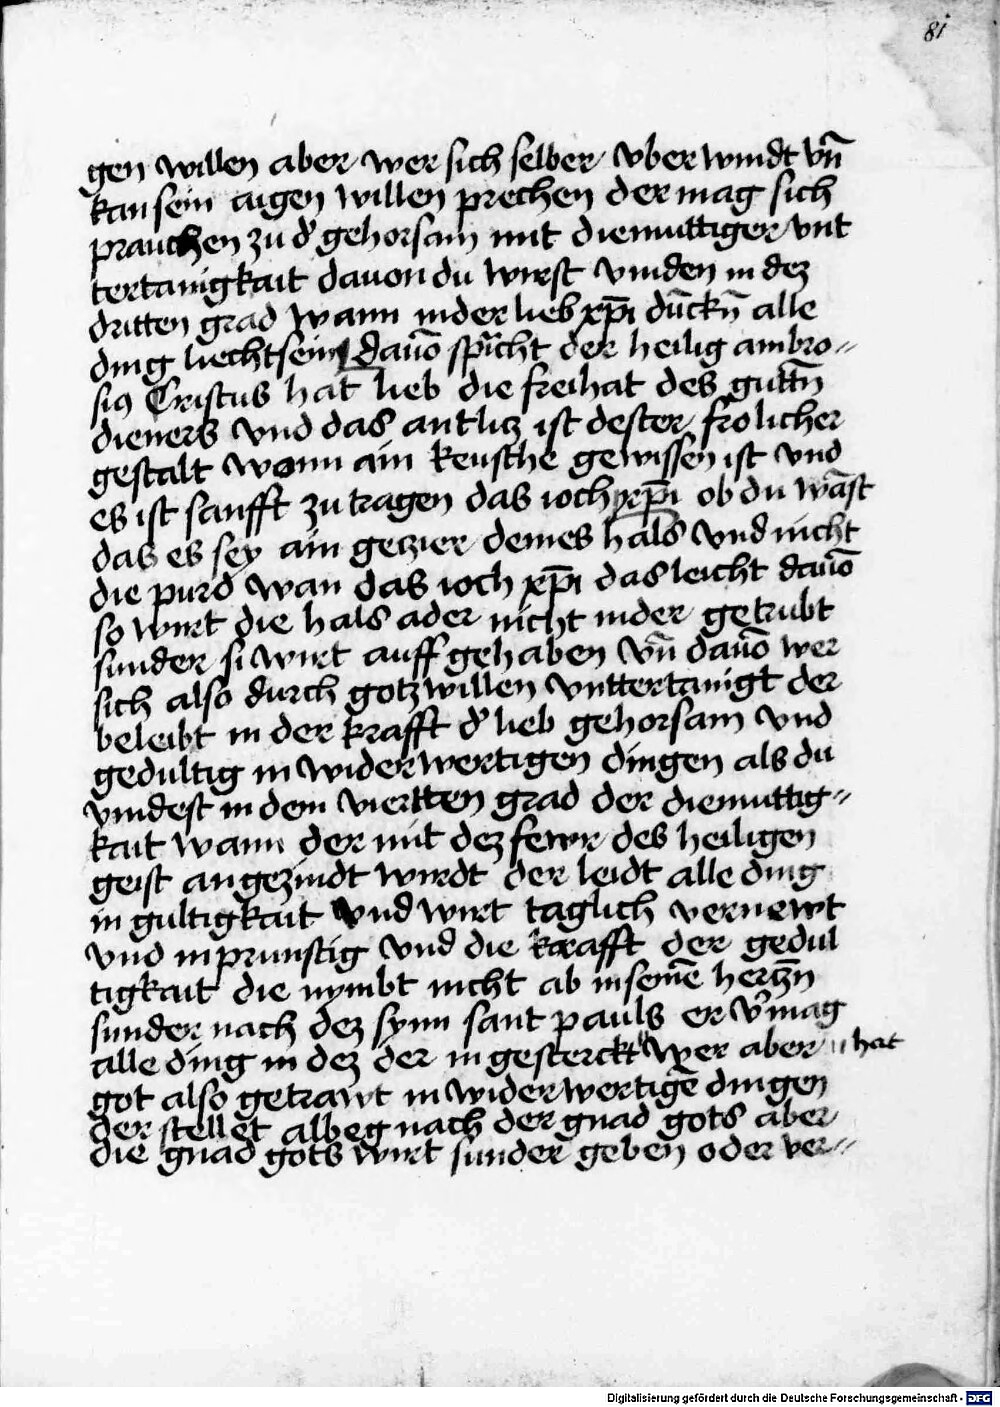 81
gen willen aber wer sich selber vber windt vn̄
kan sein aigen willen prechen der mag sich
prauchen zu d' gehorsam mit diemuttiger vnt
tertanigkait dauon du wirst vinden in dez
dritten grad wann in der lieb xp̄i du̅ckn̄ alle
ding liecht sein dauō spricht der heilig ambro〃
siꝰ Cristus hat lieb die freihat des guttn̄
dieners vnd das antlitz ist dester frolicher
gestalt wann ain keusche gewissen ist vnd
es ist sanfft zu tragen das ioch xp̄i ob du wāst
das es sey ain gezier deines hals vnd nicht
die purd wan das ioch xp̄i das leicht dauō
so wirt die hals ader nicht nider getrubt
sunder si wirt auff gehaben vn̄ dauō wer
sich also durch gotz willen vnttertanigt der
beleibt in der krafft d' lieb gehorsam vnd
gedultig in wider wertigen dingen als du
vindest in dem viertten grad der diemuttig〃
kait wann der mit dez fewr des heiligen
geist angezindt wirdt der leidt alle ding
in gultigkait vnd wirt taglich vernewt
vnd inprunstig vnd die krafft der gedul
tigkait die nymbt nicht ab in seinē hertzn̄
sunder nach dez synn sant pauls er v'mag
alle ding in dez der in gesterckt wer aber hat
got also getrawt in wider wertigē dingen
der stellet albeg nach der gnad gots aber
die gnad gots wirt sunder geben oder ver〃
Digitalisierung gefördert durch die Deutsche Forschungsgemeinschaft - DFG